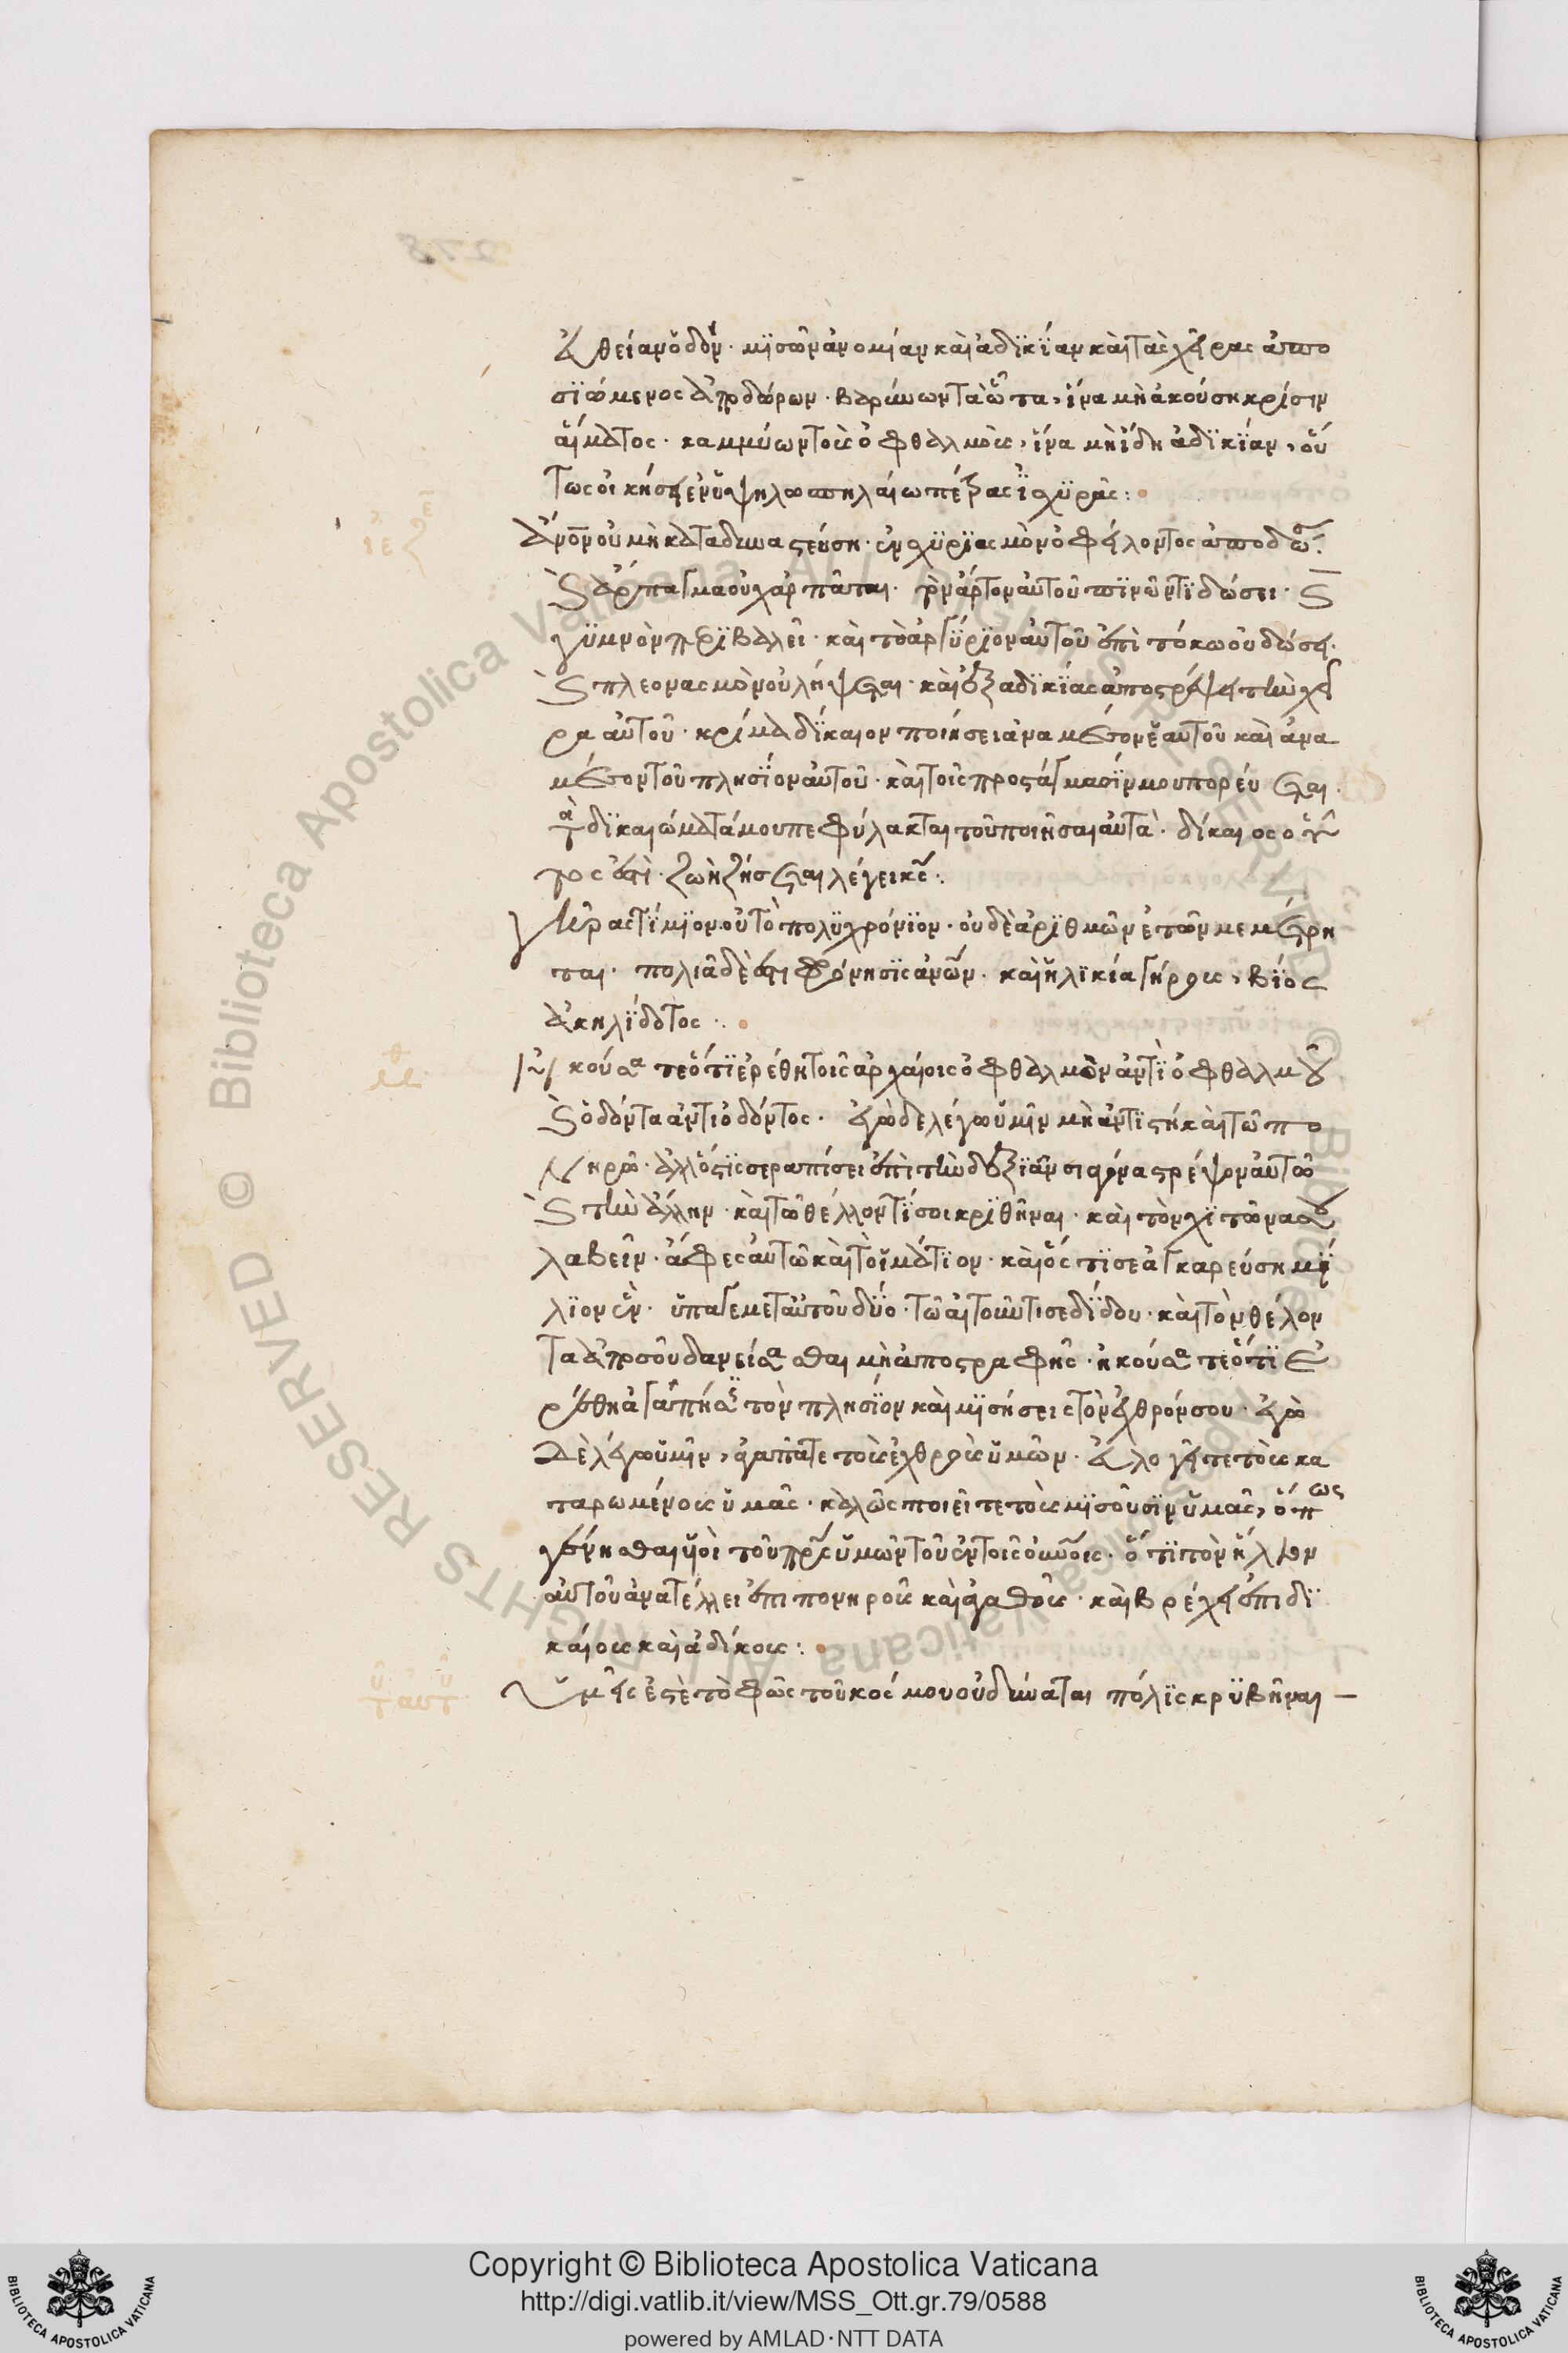 εὐθείαν ὁδόν· μισῶν ἀνομίαν καὶ ἀδικίαν καὶ τὰς χεῖρας ἀπο
σιόμενος ἀπὸ δώρων· βαρύνων τὰ ὦτα, ἵνα μὴ ἀκούση κρίσιν
αἵματος· καμμύων τοὺς ὀφθαλμοὺς, ἵνα μὴ ἴδη ἀδικίαν, οὕ
τως οἰκήσει ἐν ὑψηλῶ σπηλάιω πέτρας ἰσχυρᾶς:
ιεζ
ἄνον οὐ μὴ καταδυναστεύση· ἐνεχυριασμὸν ὀφείλοντος ἀποδώσ
καὶ ἅρπαγμα οὐχ ἁρπᾶται· τὸν ἄρτον αὐτοῦ πινῶντι δώσει· καὶ
γυμνὸν περιβαλεῖ· καὶ τὸ ἀργύριον αὐτοῦ ἐπὶ τόκω οὐ δώσει·
καὶ πλεονασμὸν οὐ λήψεται· καὶ ἐξ ἀδικίας ἀποστρέψει τὴν χεῖ
ρα αὐτοῦ· κρίμα δίκαιον ποιήσει ἀνα μέσον ἑαυτοῦ καὶ ἀνα
μέσον τοῦ πλησίον αὐτοῦ· καὶ τοῖς προστάγμασίν μου πορεύεται·
τὰ δικαιώματά μου πεφύλακται τοῦ ποιῆσαι αὐτὰ· δίκαιος οὗ
τος ἐστὶ· ζωὴ ζήσεται λέγει κς:
γῆρας τίμιον οὐ τὸ πολυχρόνιον· οὐδὲ ἀριθμῶν ἐτῶν μεμέτρη
ται· πολιὰ δὲ ἐστι φρόνησις ἀνων· καὶ ἡλικία γήρους, βίος
ἀκηλίδοτος:
ἠκούσατε ὅτι ἐρέθη τοῖς ἀρχαίοις ὀφθαλμὸν ἀντὶ ὀφθαλμοῦ
καὶ ὀδόντα ἀντι ὀδόντος· ἐγὼ δε λέγω ὑμῖν μὴ ἀντιστῆναι τῶ πο
νηρῶ· ἀλλ' ὅστις σε ραπίσει ἐπὶ τὴν δεξιὰν σιαγόνα στρέψον αὐτῶ
καὶ τὴν ἄλλην· καὶ τῶ θέλλοντί σοι κριθῆναι· καὶ τὸν χιτῶνα σου
λαβεῖν· ἄφες αὐτῶ καὶ τὸ ἱμάτιον· καὶ ὅστις σε ἀγκαρεύση μί
λιον ἓν· ὕπαγε μετ' αὐτοῦ δύο· τῶ αἰτοῦντι σε δίδου· καὶ τὸν θέλον
τα ἀπὸ σοῦ δανείσασθαι μὴ ἀποστραφῆς· ἠκούσατε ὅτι ἐ
ρέθη ἀγαπήσεις τὸν πλησίον καὶ μισήσεις τὸν ἐχθρόν σου· ἐγὼ
δὲ λέγω ὑμῖν, ἀγαπᾶτε τοὺς ἐχθροὺς ὑμῶν· εὐλογεῖτε τοὺς κα
ταρωμένους ὑμᾶς· καλῶς ποιεῖτε τοὺς μισοῦσιν ὑμᾶς, ὅπως
γένησθαι ὑιοὶ τοῦ πρς ὑμῶν τοῦ ἐν τοῖς οὐνοις· ὅτι τὸν ἥλιον
αὐτοῦ ἀνατέλλει ἐπι πονηροὺς καὶ ἀγαθοὺς· καὶ βρέχει ἐπι δι
καίους καὶ ἀδίκους:
ὑμεῖς ἐστὲ τὸ φῶς τοῦ κόσμου οὐ δύναται πόλις κρυβῆναι –
Copyright © Biblioteca Apostolica Vaticana
http://digi.vatlib.it/view/MSS_Ott.gr.79/0588
powered by AMLAD·NTT DATA